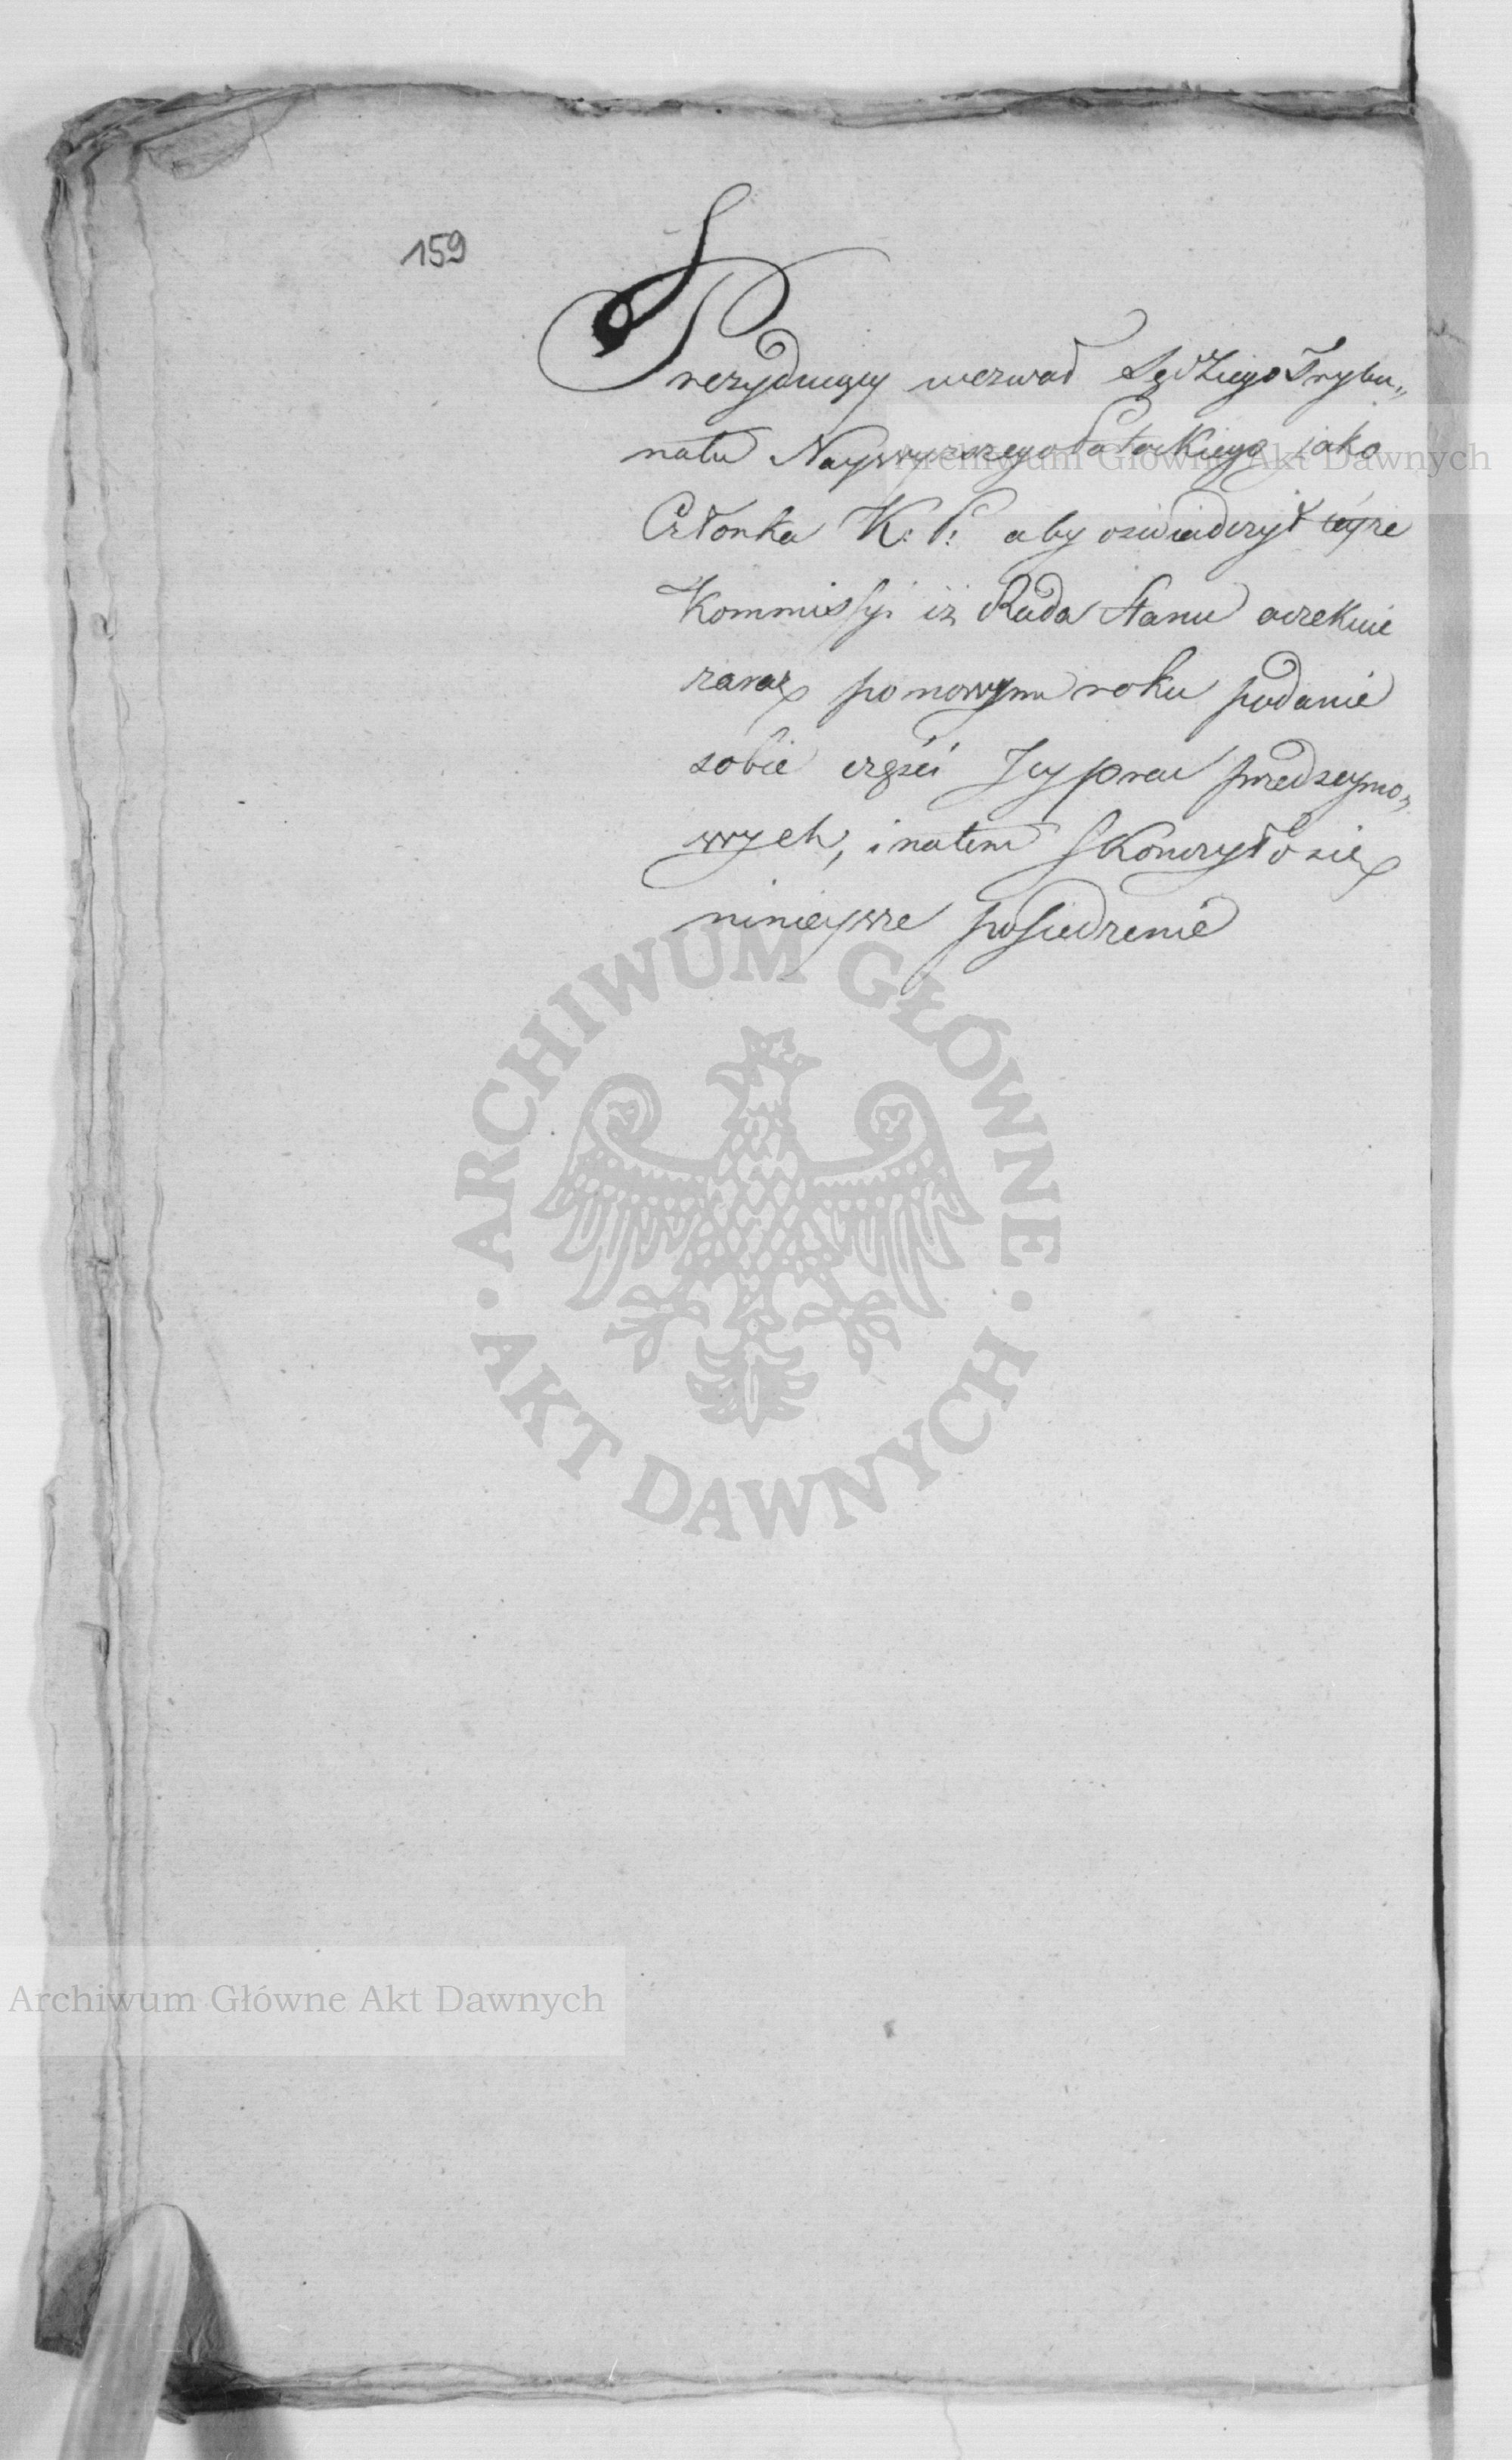 159
Prezyduiący wezwał Sędziego Trybu„
nału Naywyższego Potockiego jako
Członka K: P: aby oświadczył teyże
Kommissyi iż Rada Stanu oczekuie
zaraz po nowym roku podanie
sobie części Jey prac przedseymo„
wych, i natem skończyło się
ninieysze posiedzenie
Archiwum Główne Akt Dawnych
ARCHIWUM GŁÓWNE
AKT DAWNYCH
Archiwum Główne Akt Dawnych